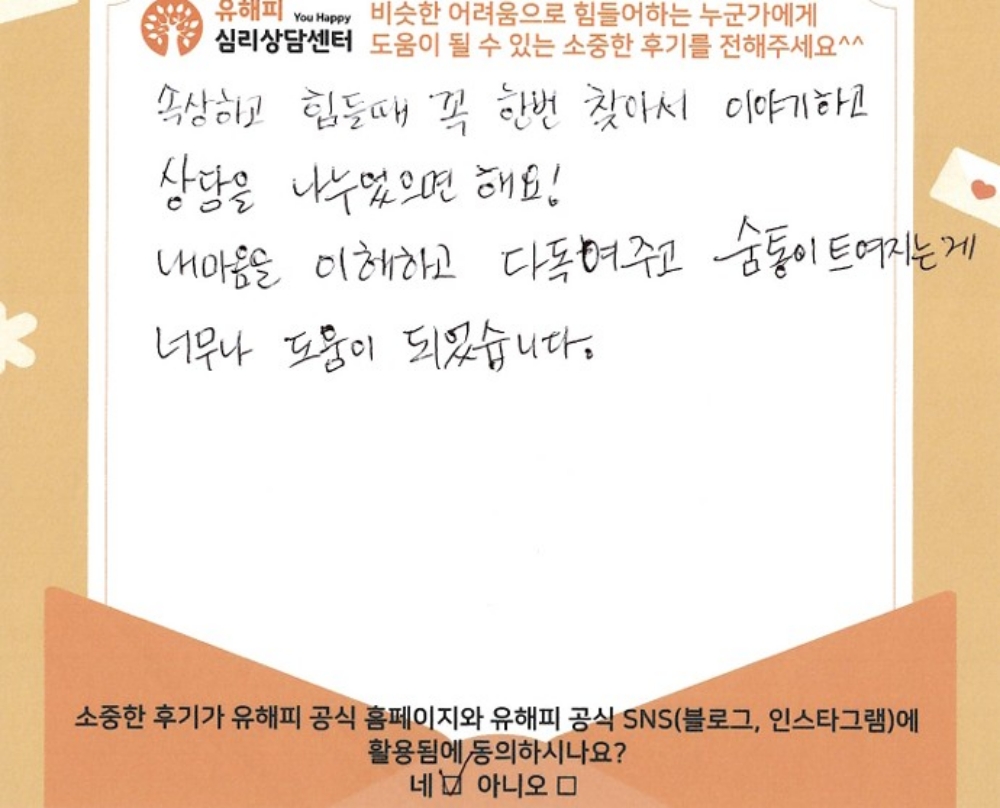 유해피 You Happy
심리상담센터
비슷한 어려움으로 힘들어하는 누군가에게
도움이 될 수 있는 소중한 후기를 전해주세요^^
속상하고 힘들때 꼭 한번 찾아서 이야기하고
상담을 나누었으면 해요!
내마음을 이해하고 다독여주고 숨통이 트여지는게
너무나 도움이 되었습니다.
소중한 후기가 유해피 공식 홈페이지와 유해피 공식 SNS(블로그, 인스타그램)에
활용됨에 동의하시나요?
네 ☑ 아니오 □